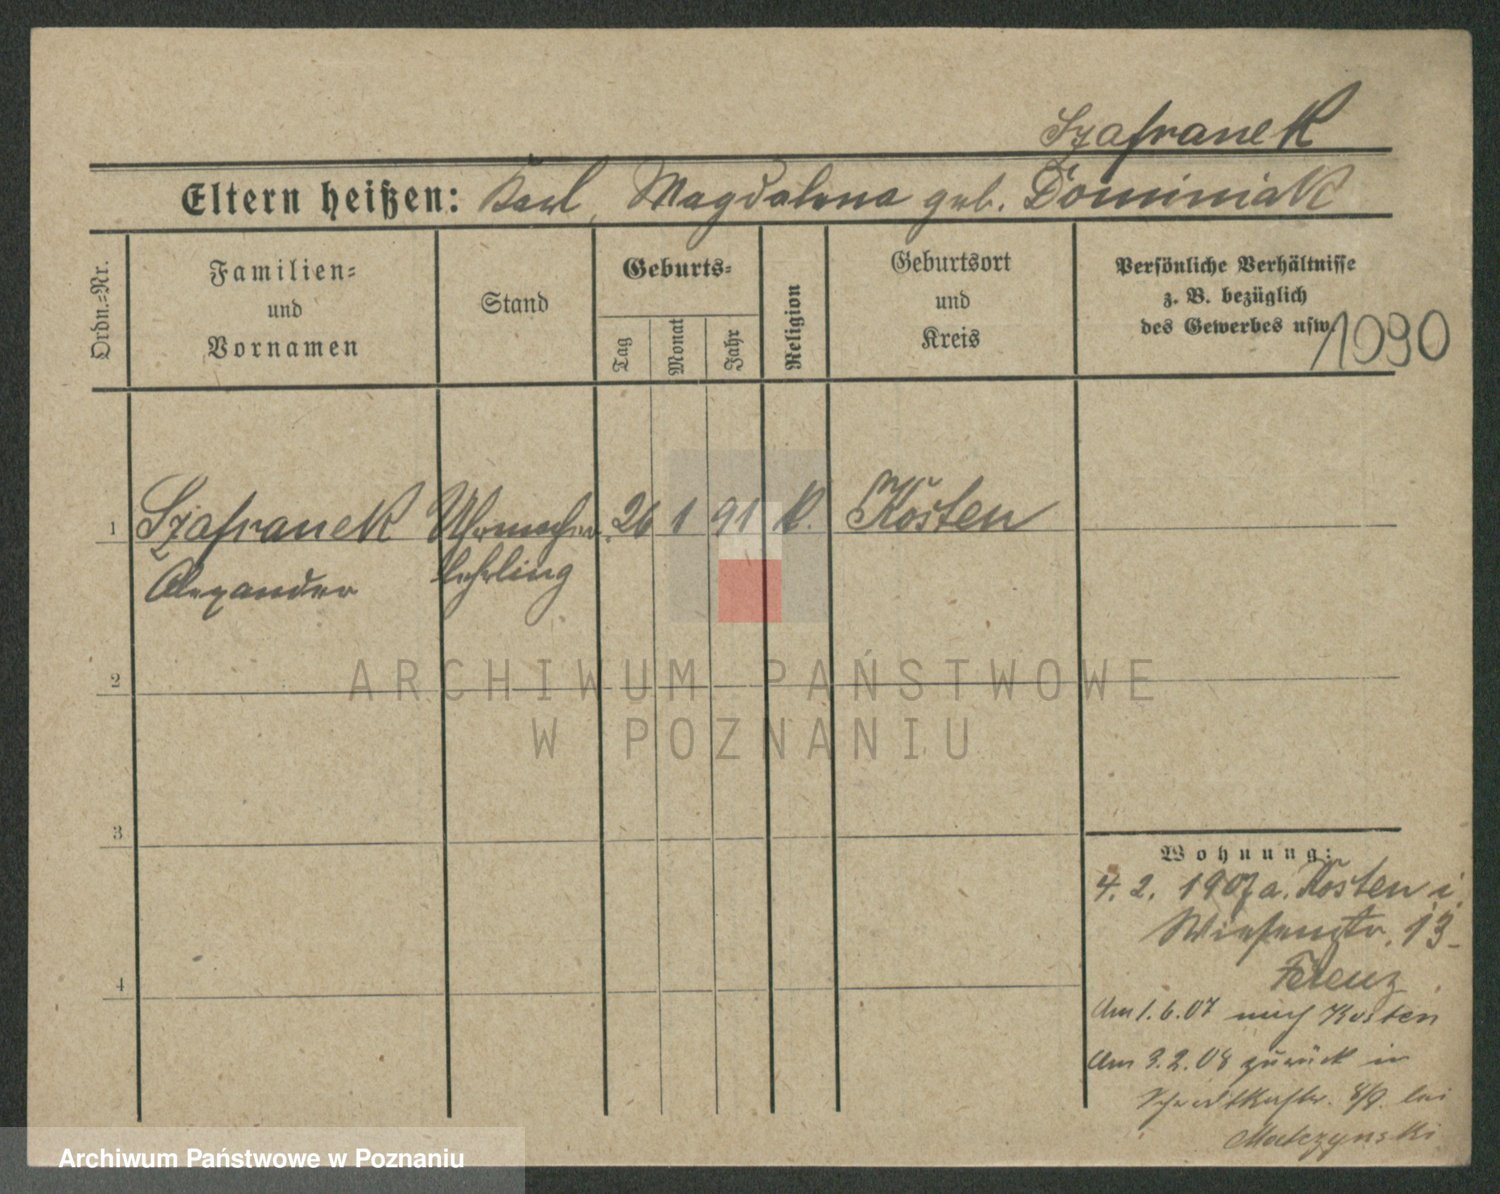 Szafranek
Eltern heißen: Karl, Magdalena geb. Dominiak
Ordn.-Nr.
Familien-
und
Vornamen
Stand
Geburts-
Tag
Monat
Jahr
Religion
Geburtsort
und
Kreis
Persönliche Verhältnisse
z. B. bezüglich
des Gewerbes usw.
1090
1 Szafranek Uhrmacher 26 1 91 k. Kosten
Alexander lehrling
2
3
4
ARCHIWUM PAŃSTWOWE
W POZNANIU
Wohnung:
4. 2. 1907 a. Kosten i.
Wiesenstr. 13
Am 1. 6. 07 nach Kosten
Am 3. 2. 08 zurück in
bei
Matczynski
Archiwum Państwowe w Poznaniu